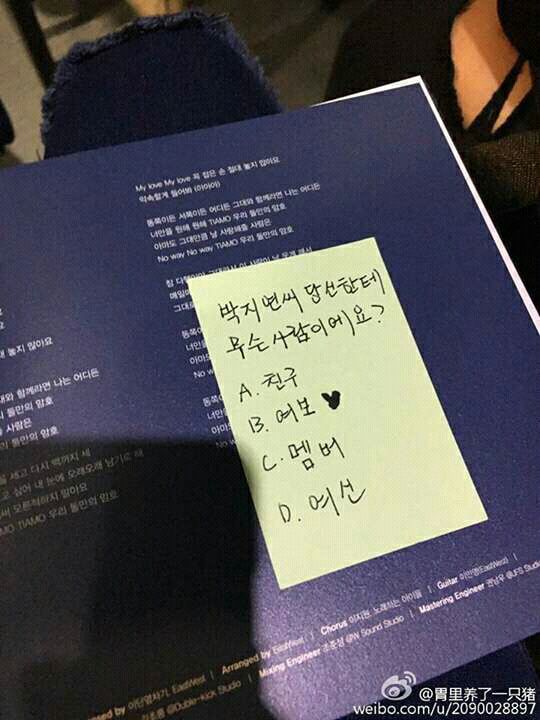 My love My love 꼭 잡은 손 절대 놓지 않아요
약속할게 들어봐 (아아아)
동쪽이든 서쪽이든 어디든 그대와 함께라면 나는 어디든
너만을 원해 원해 TIAMO 우리 둘만의 암호
아마도 그대만큼 날 사랑해줄 사람은
No way No way TIAMO 우리 둘만의 암호
매일매
그대로
동쪽
너만을
아마도
No wa
대 놓지 않아요
대와 함께라면 나는 어디든
둘만의 암호
줄 사람은
둘만의 암호
세고 다시 백까지 세
고 싶어 내 눈에 오래오래 남기로 해
써 모른척하지 말아요
TIAMO 우리 둘만의 암호
박지연씨 당선한테
무슨사람이에요?
A. 친구
B. 여보 ♥
C. 멤버
D. 여신
Arranged by EastWest | Chorus 이지원, 노래하는 아이들 | Guitar 이만영(EastWest)
Mixing Engineer 조준성 @W Sound Studio | Mastering Engineer 권남우 @JFS Studio
@胃里养了一只猪
weibo.com/u/2090028897